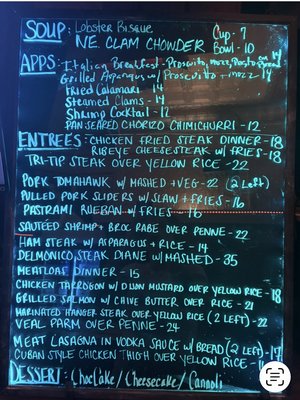 SOUP: Lobster Bisque Cup - 7
NE. CLAM CHOWDER Bowl - 10
APPS: Italian Breakfast - Prosciutto, mozz, 14
Grilled Asparagus w/ Prosciutto + mozz - 14
Fried Calamari 14
Steamed Clams - 14
Shrimp Cocktail - 12
PAN SEARED CHORIZO CHIMICHURRI - 12
ENTREES: CHICKEN FRIED STEAK DINNER - 18
RIBEYE CHEESESTEAK w/ FRIES - 18
TRI-TIP STEAK OVER YELLOW RICE - 22
PORK TOMAHAWK w/ MASHED + VEG - 22 (2 Left)
PULLED PORK SLIDERS w/ SLAW + FRIES - 16
PASTRAMI RUEBAN w/ FRIES - 16
SAUTÉED SHRIMP + BROC RABE OVER PENNE - 22
HAM STEAK w/ ASPARAGUS + RICE - 14
DELMONICO STEAK DIANE w/ MASHED - 35
MEATLOAF DINNER - 15
CHICKEN TARROGON w/ DIJON MUSTARD OVER YELLOW RICE - 18
GRILLED SALMON w/ CHIVE BUTTER OVER RICE - 21
MARINATED HANGER STEAK OVER YELLOW RICE (2 LEFT) - 22
VEAL PARM OVER PENNE - 24
MEAT LASAGNA IN VODKA SAUCE w/ BREAD (2 Left) - 17
CUBAN STYLE CHICKEN THIGH OVER YELLOW RICE -
DESSERT: Choc Cake / Cheesecake / Cannoli